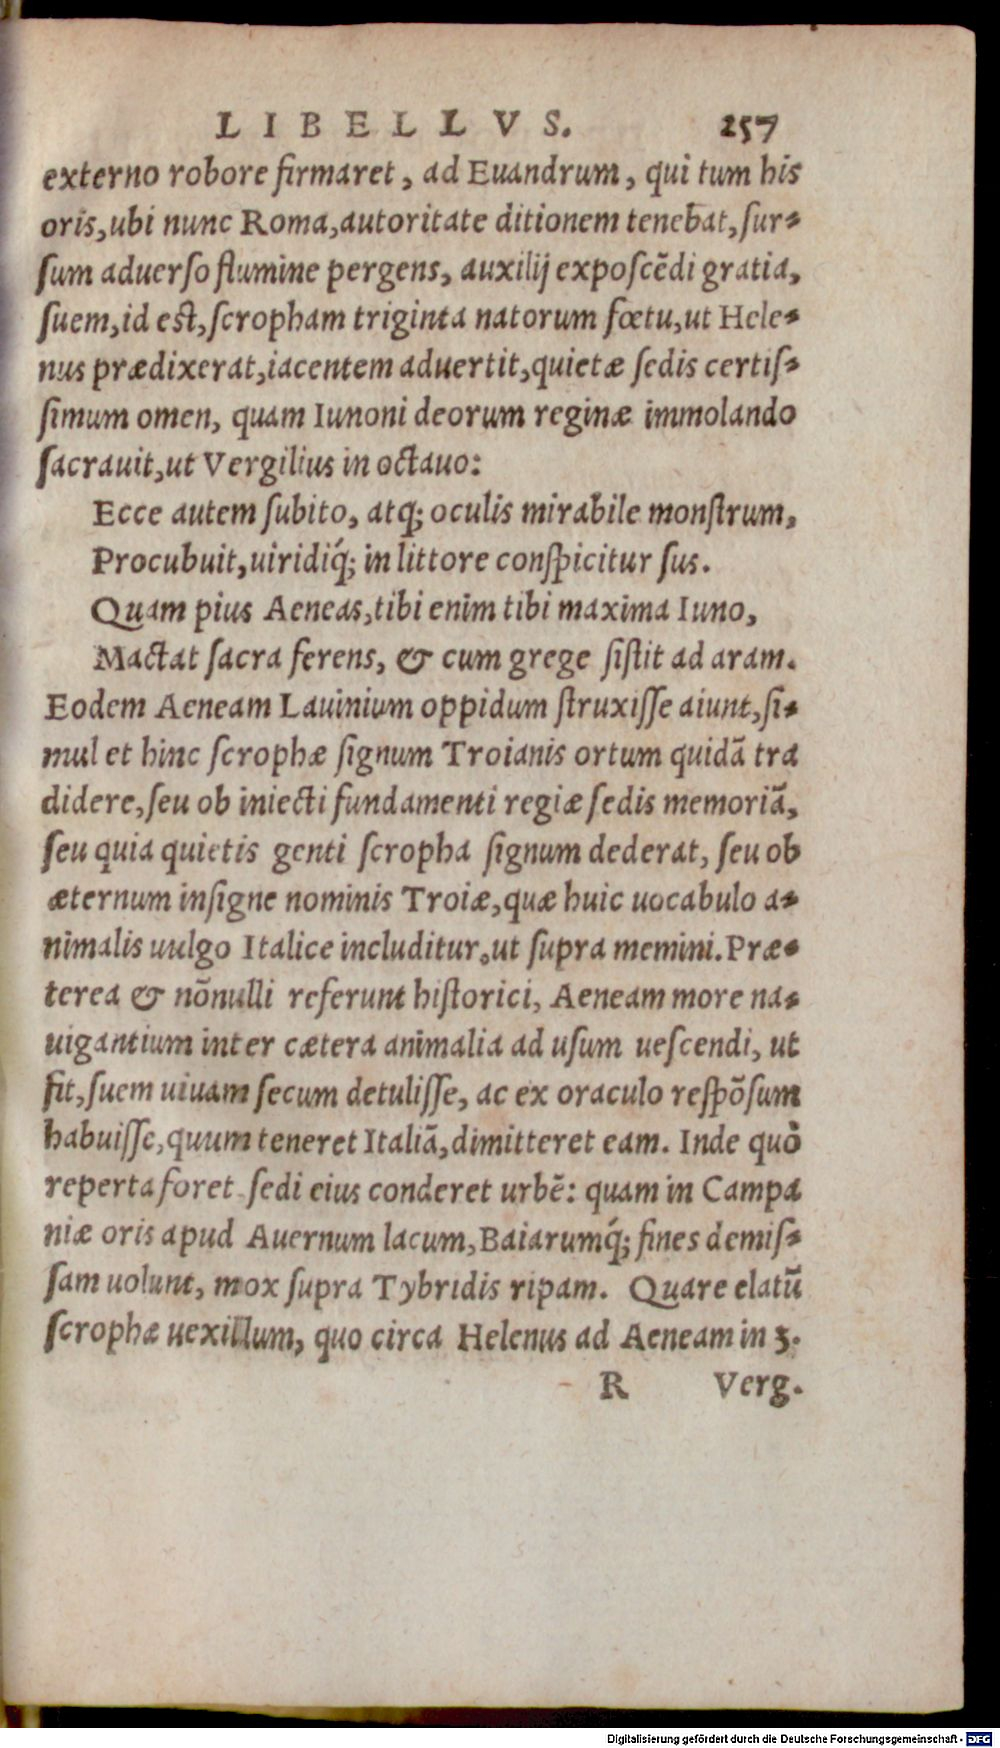 LIBELLVS. 257
externo robore firmaret, ad Euandrum, qui tum his
oris, ubi nunc Roma, autoritate ditionem tenebat, sur-
sum aduerso flumine pergens, auxilij exposcẽdi gratia,
suem, id est, scropham triginta natorum fœtu, ut Hele-
nus prædixerat, iacentem aduertit, quietæ sedis certis-
simum omen, quam Iunoni deorum reginæ immolando
sacrauit, ut Vergilius in octauo:
Ecce autem subito, atq; oculis mirabile monstrum,
Procubuit, uiridiq́; in littore conspicitur sus.
Quam pius Aeneas, tibi enim tibi maxima Iuno,
Mactat sacra ferens, & cum grege sistit ad aram.
Eodem Aeneam Lauinium oppidum struxisse aiunt, si-
mul et hinc scrophæ signum Troianis ortum quidã tra
didere, seu ob iniecti fundamenti regiæ sedis memoriã,
seu quia quietis genti scropha signum dederat, seu ob
æternum insigne nominis Troiæ, quæ huic uocabulo a-
nimalis uulgo Italice includitur. ut supra memini. Præ-
terea & nõnulli referunt historici, Aeneam more na-
uigantium inter cætera animalia ad usum uescendi, ut
fit, suem uiuam secum detulisse, ac ex oraculo respõsum
habuisse, quum teneret Italiã, dimitteret eam. Inde quò
reperta foret sedi eius conderet urbẽ: quam in Campa
niæ oris apud Auernum lacum, Baiarumq́; fines demis-
sam uolunt, mox supra Tybridis ripam. Quare elatũ
scrophæ uexillum, quo circa Helenus ad Aeneam in 3.
R Verg.
Digitalisierung gefördert durch die Deutsche Forschungsgemeinschaft - DFG